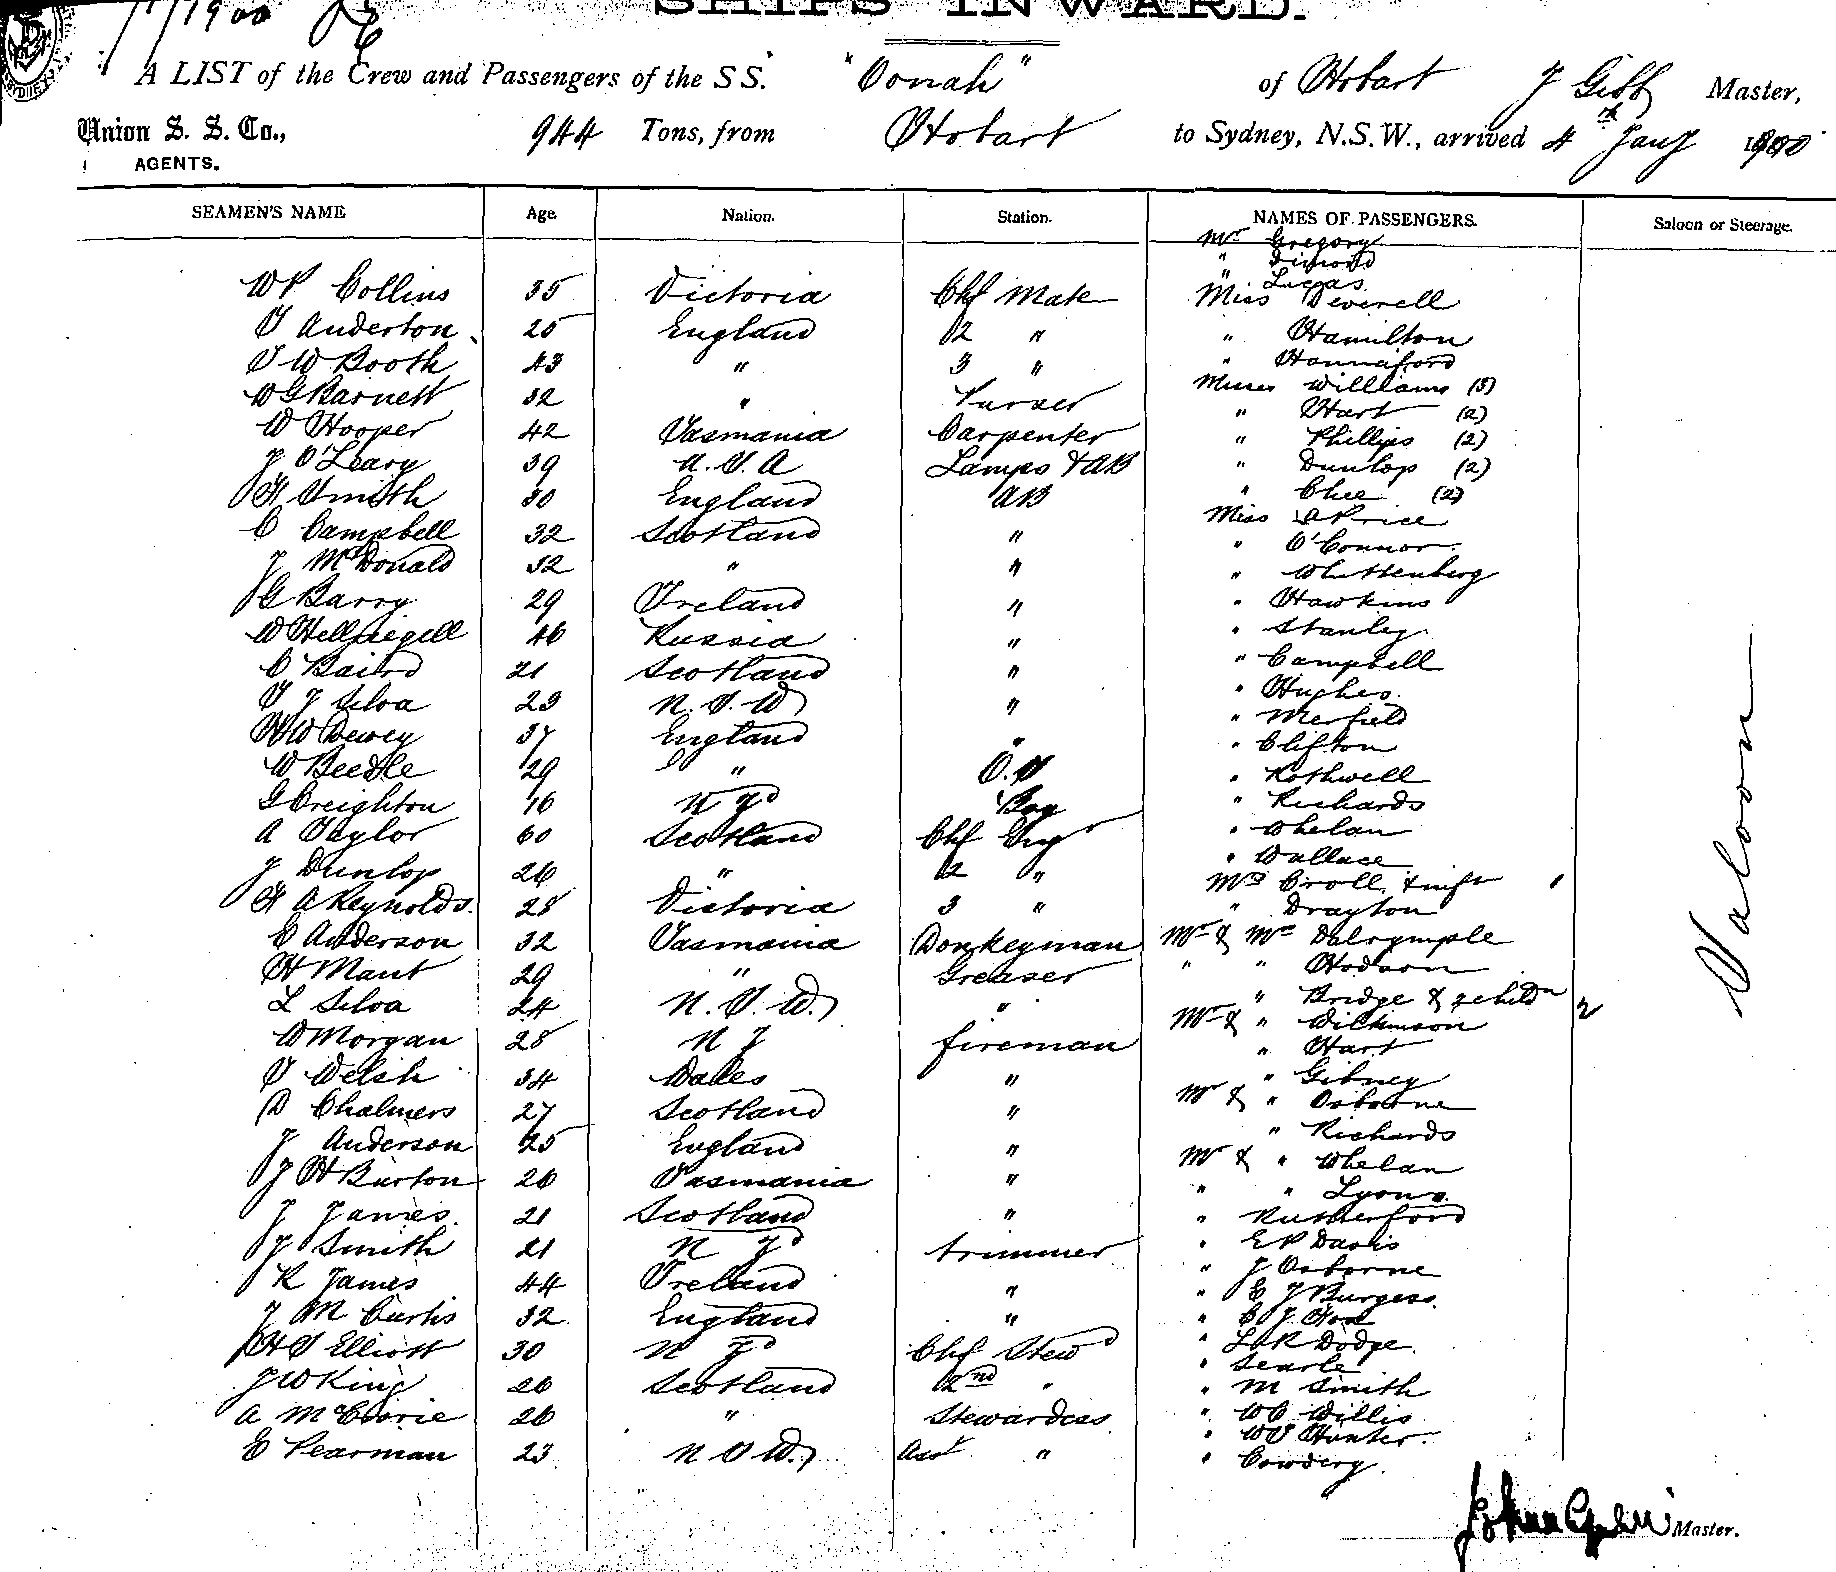 1/1/1900
SHIPS INWARD.
A LIST of the Crew and Passengers of the SS. "Oonah" of Hobart J Gibb Master,
Union S. S. Co., AGENTS. 944 Tons, from Hobart to Sydney, N.S.W., arrived 4th Jany 1900
SEAMEN'S NAME Age Nation. Station. NAMES OF PASSENGERS. Saloon or Steerage.
Mr Gregory
" Dimond
" Lucas
W P Collins 35 Victoria Chf Mate Miss Deverell
T Anderton 25 England 2 " " Hamilton
T W Booth 43 " 3 " " Hannaford
W G Barnett 32 " Purser Misses Williams (3)
" Hart (2)
W Hooper 42 Tasmania Carpenter " Phillips (2)
J O'Leary 39 U.S.A Lamps & AB " Dunlop (2)
H Smith 30 England AB " Chee (2)
C Campbell 32 Scotland " Miss A Price
" O'Connor
J McDonald 32 " " " Whittenberg
G Barry 29 Ireland " " Hawkins
W 46 Russia " " Stanley
C Baird 21 Scotland " " Campbell
T J Silva 23 N.S.W " " Hughes
" Merfield
H W Dewey 37 England " " Clifton
W Beedle 29 " O.S " Rothwell
G Creighton 16 N Zd Boy " Richards
A Taylor 60 Scotland Chf Engr " Whelan
" Wallace
J Dunlop 26 " 2 " Mrs Croll & inft 1
H A Reynolds 28 Victoria 3 " " Drayton
E Anderson 32 Tasmania Donkeyman Mr & Mrs Dalrymple
H Mant 29 " Greaser " " Hodson
L Silva 24 N.S.W. " " Bridge & 2 childn 2
Mr & " Wilkinson
W Morgan 28 N Z fireman " Hart
T Welsh 34 Wales " " Gibney
D Chalmers 27 Scotland " Mr & " Osborne
J Anderson 25 England " " Richards
J H Burton 26 Tasmania " Mr & " Whelan
" " Lyons
J James 21 Scotland " " Rutherford
J Smith 21 N Zd trimmer " E P Davis
R James 44 Ireland " " J Osborne
" C J Burgess
J M Curtis 32 England " " C J
H S Elliott 30 N Zd Chf Stewd " L R Dodge
" Searle
J W King 26 Scotland 2nd " " M Smith
A McCrorie 26 " Stewardess " W C Willis
" W S Hunter
E Pearman 23 N S W. Asst " " Cowdery
Saloon
John Gibb Master.